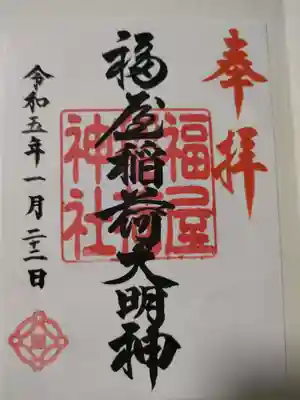 奉拝
福屋稲荷大明神
福屋稲荷神社
令和五年一月二十二日